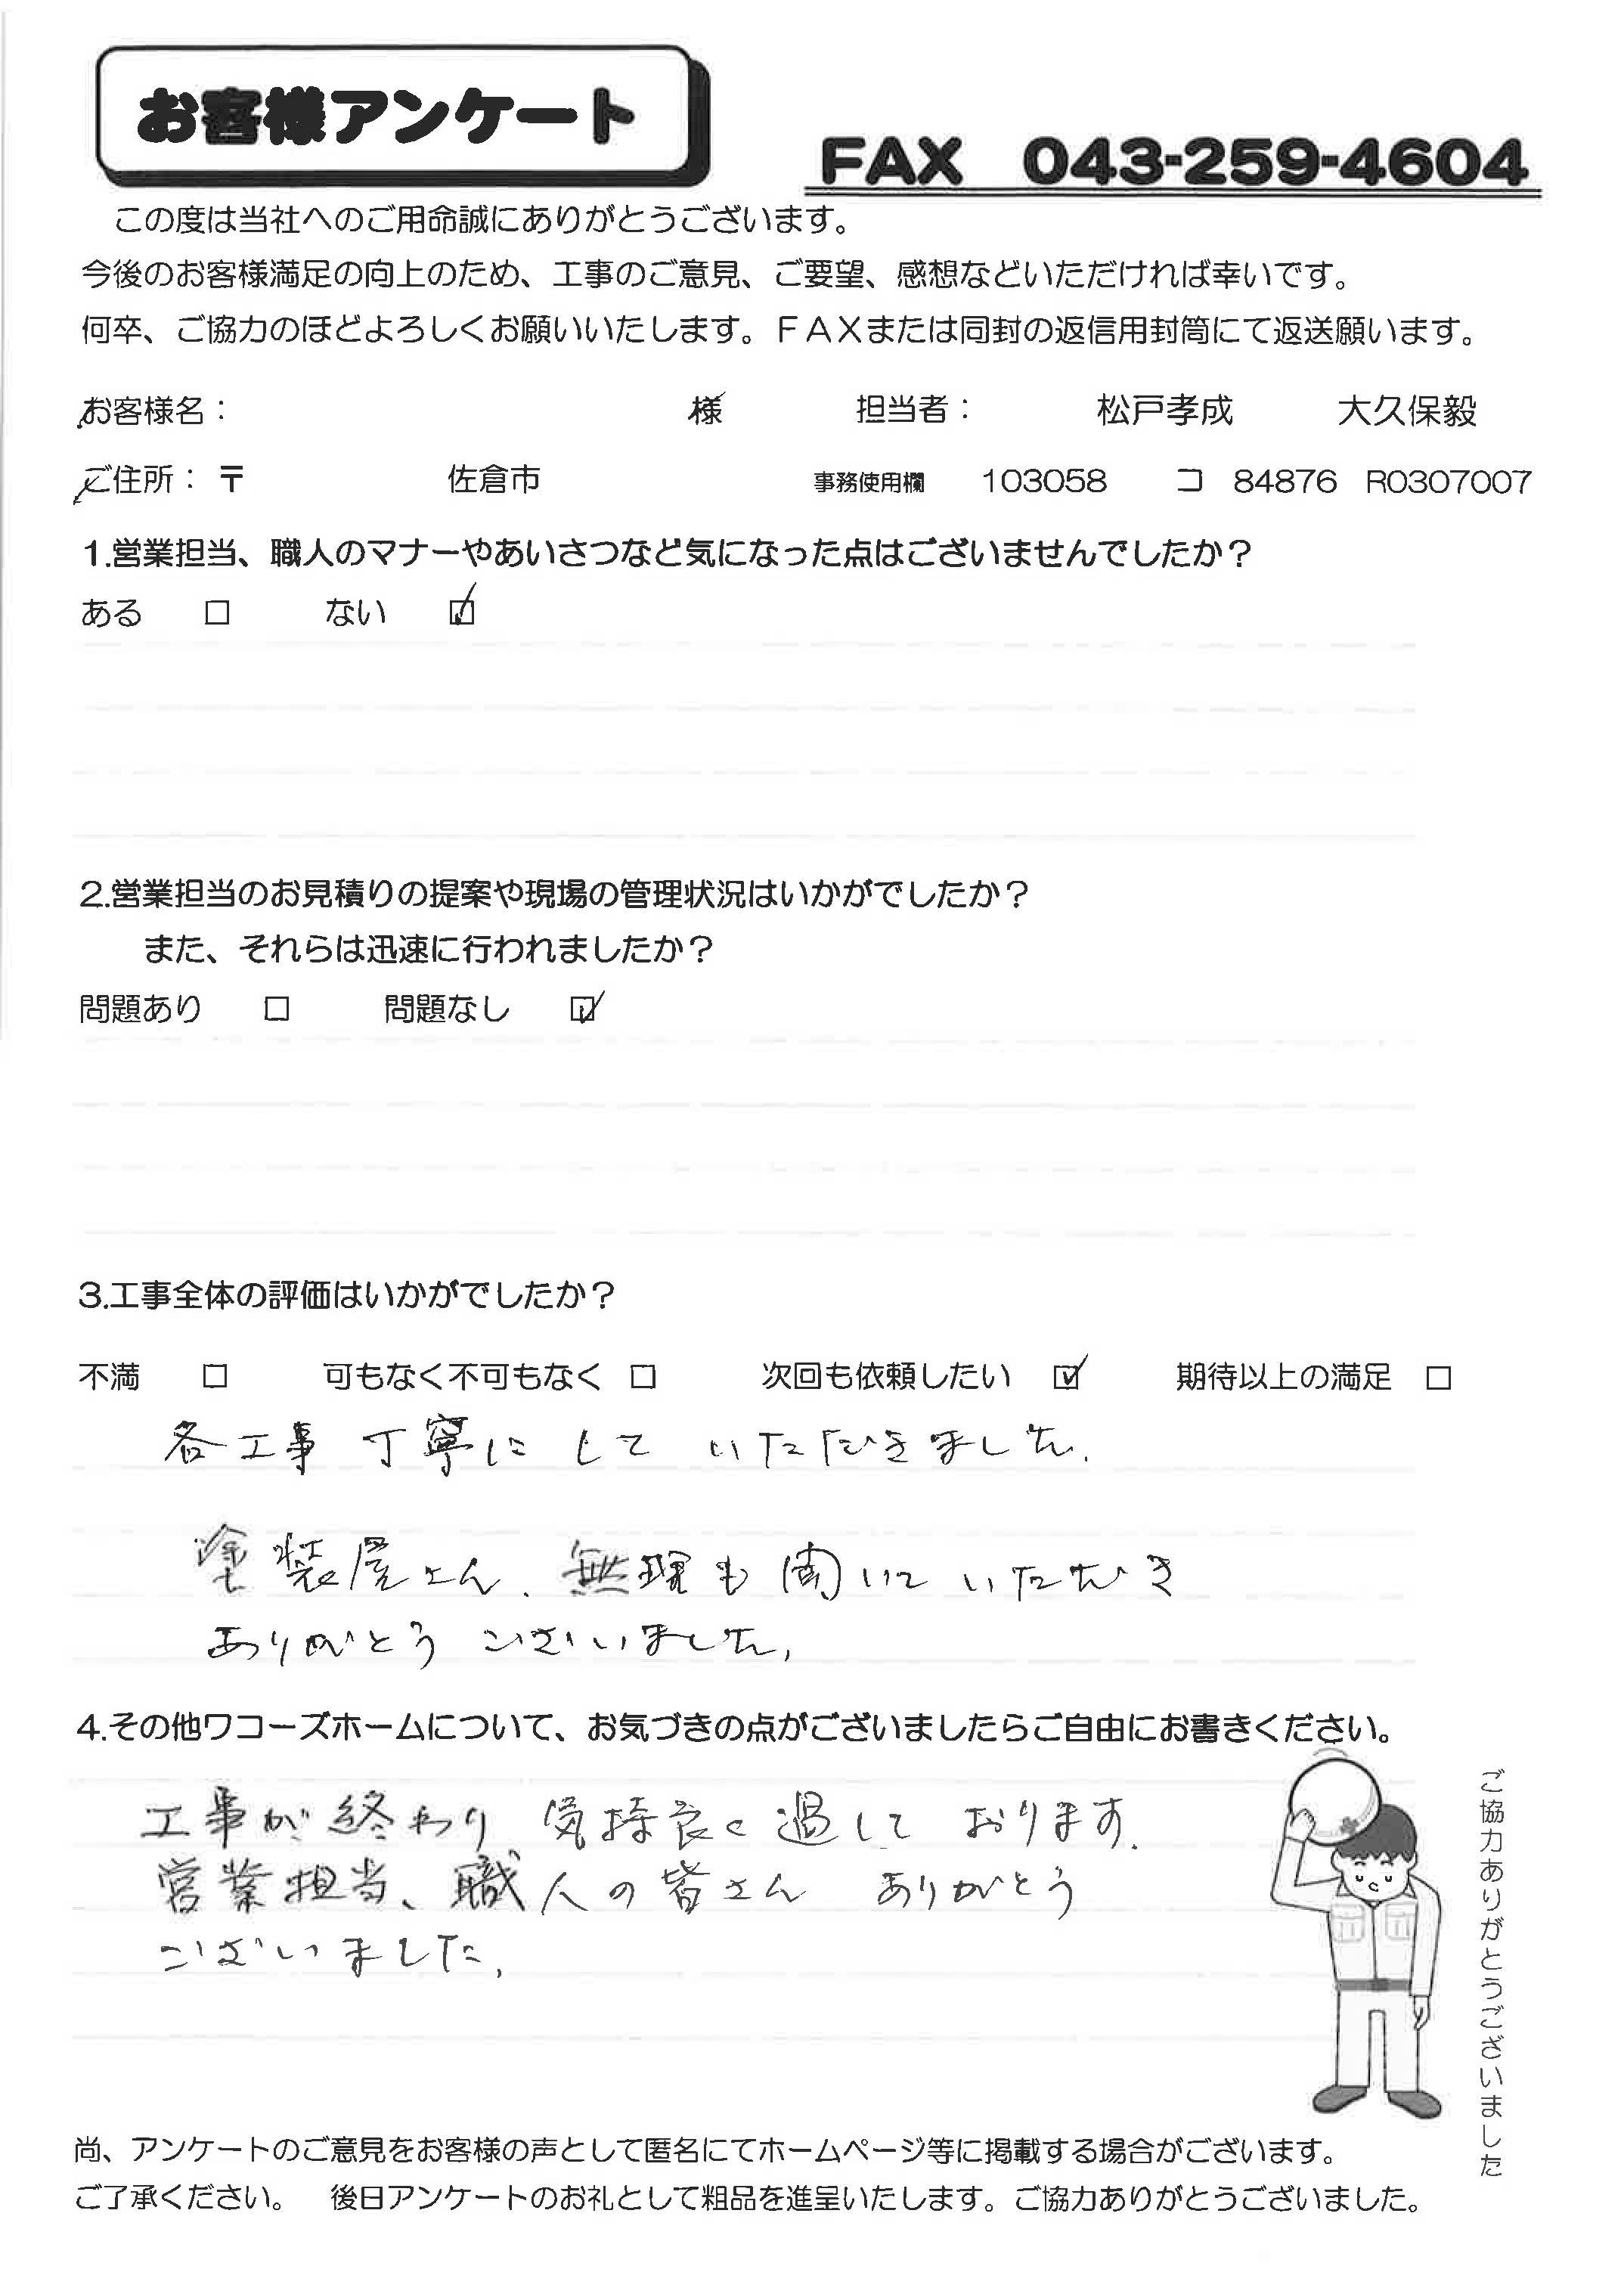 お客様アンケート
FAX 043-259-4604
この度は当社へのご用命誠にありがとうございます。
今後のお客様満足の向上のため、工事のご意見、ご要望、感想などいただければ幸いです。
何卒、ご協力のほどよろしくお願いいたします。FAXまたは同封の返信用封筒にて返送願います。
お客様名： 様 担当者： 松戸孝成 大久保毅
ご住所：〒 佐倉市 事務使用欄 103058 コ 84876 R0307007
1.営業担当、職人のマナーやあいさつなど気になった点はございませんでしたか？
ある □ ない ☑
2.営業担当のお見積りの提案や現場の管理状況はいかがでしたか？
また、それらは迅速に行われましたか？
問題あり □ 問題なし ☑
3.工事全体の評価はいかがでしたか？
不満 □ 可もなく不可もなく □ 次回も依頼したい ☑ 期待以上の満足 □
各工事 丁寧に して いただきました.
塗装屋さん、無理も聞いていただき
ありがとう ございました。
4.その他ワコーズホームについて、お気づきの点がございましたらご自由にお書きください。
工事が終わり 気持良く過して おります.
営業担当、職人の皆さん ありがとう
ございました。
ご協力ありがとうございました
尚、アンケートのご意見をお客様の声として匿名にてホームページ等に掲載する場合がございます。
ご了承ください。 後日アンケートのお礼として粗品を進呈いたします。ご協力ありがとうございました。